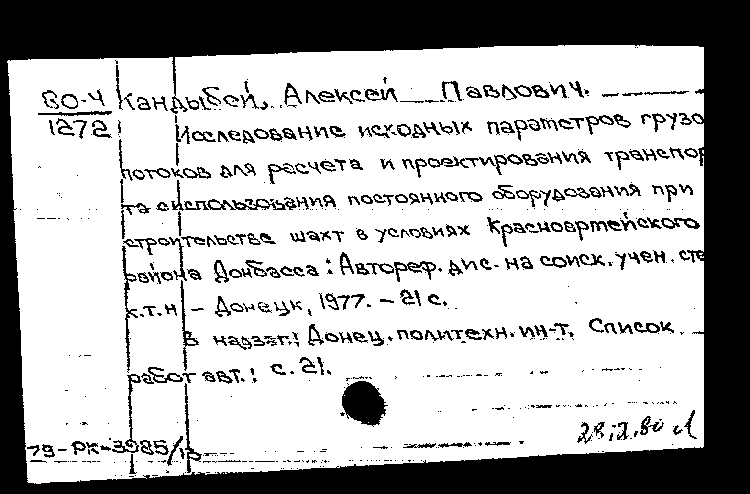 ВО-4 Кандыбей, Алексей Павлович.
1272 Исследование исходных параметров грузо
потоков для расчета и проектирования транспор
та с использования постоянного оборудования при
строительстве шахт в условиях Красноармейского
района Донбасса: Автореф. дис. на соиск. учен. сте
к.т.н - Донецк, 1977. - 21 с.
В надзаг.: Донец. политехн. ин-т. Список
работ авт.: с. 21.
28.12.80
79-РК-3985/13